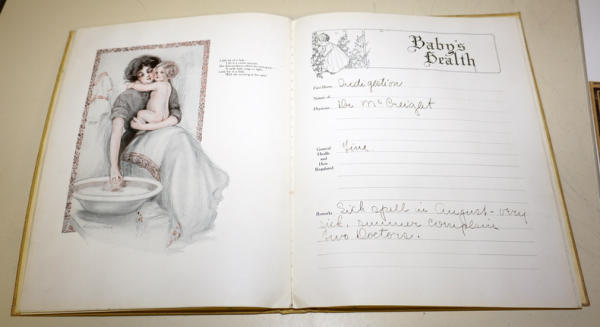 Baby's
Health
First Illness Indigestion
Name of
Physician Dr McCreight
General
Health
and
How
Regulated
Fine
Remarks Sick spell in August - very
sick, summer complain
two Doctors.